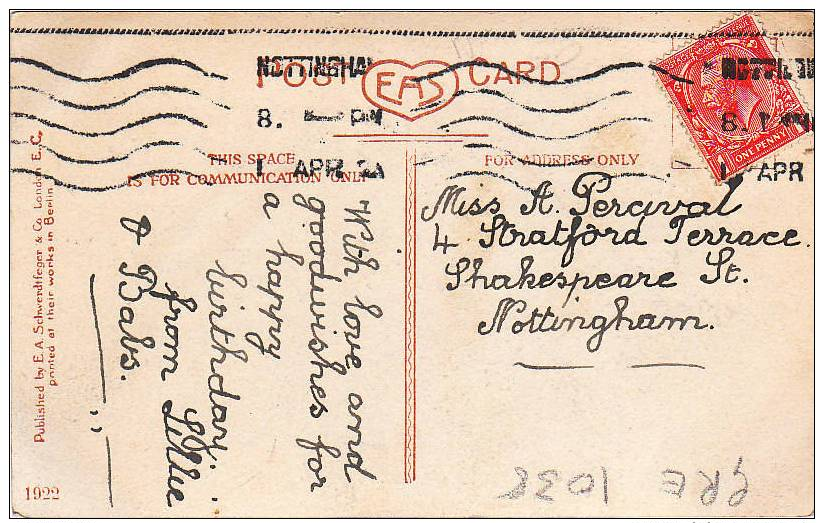 POST CARD
EAS
NOTTINGHAM
8. PM
1 APR 24
8. 1 PM
1 APR
ONE PENNY
THIS SPACE
IS FOR COMMUNICATION ONLY
FOR ADDRESS ONLY
With love and
goodwishes for
a happy
birthday.
from Lillie
& Babs.
Miss A. Percival
4 Stratford Terrace.
Shakespeare St.
Nottingham.
Published by E.A. Schwerdtfeger & Co. London E.C.
printed at their works in Berlin
1922
GRE 1038